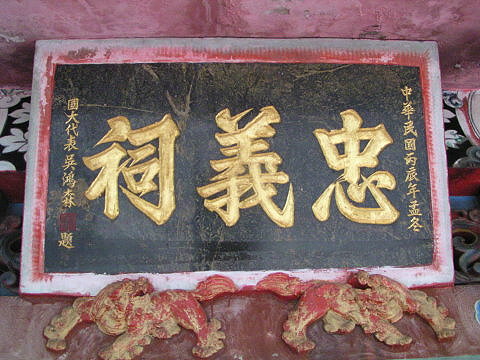 中華民國丙辰年孟冬
忠義祠
國大代表吳鴻森 題